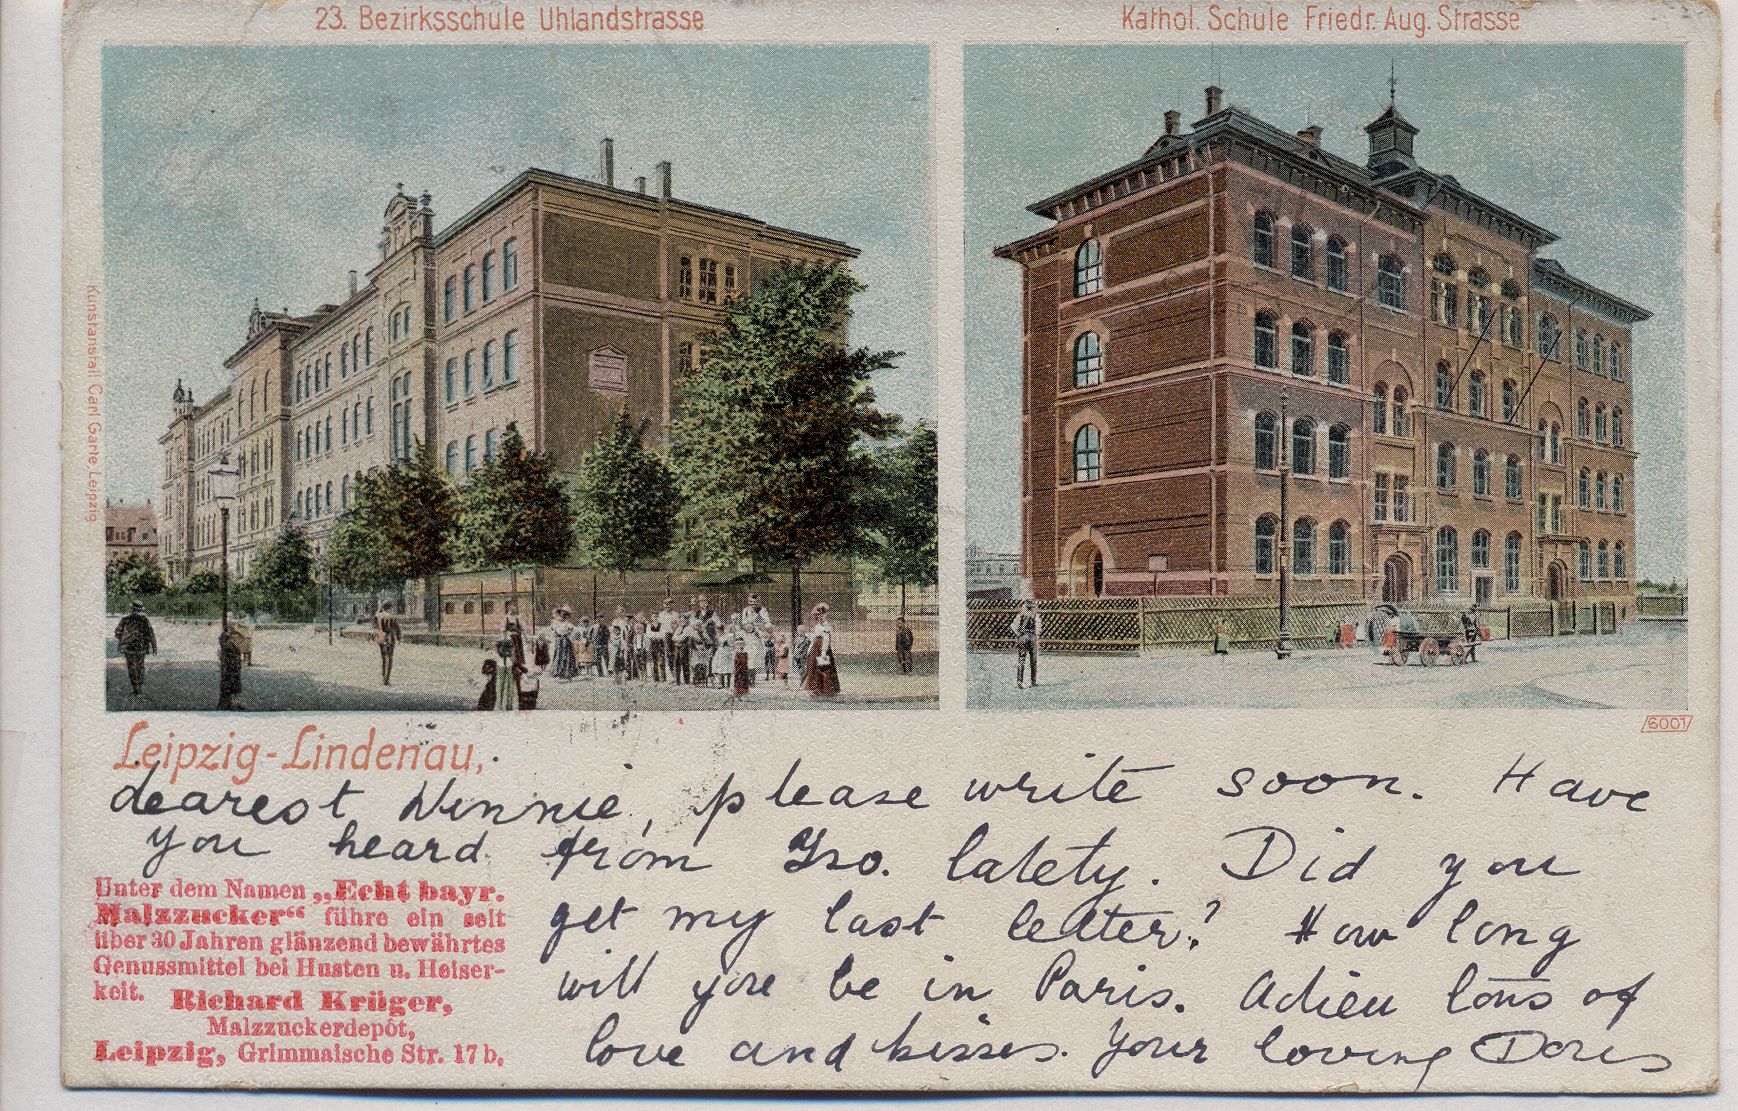 23. Bezirksschule Uhlandstrasse
Kathol. Schule Friedr. Aug. Strasse
Kunstanstalt Carl Garte, Leipzig
6001
Leipzig-Lindenau,
dearest Winnie, please write soon. Have
you heard from Iso. lately. Did you
get my last letter? How long
will you be in Paris. Adieu lots of
love and kisses. Your loving Doris
Unter dem Namen „Echt bayr.
Malzzucker“ führe ein seit
über 30 Jahren glänzend bewährtes
Genussmittel bei Husten u. Heiser-
keit. Richard Krüger,
Malzzuckerdepôt,
Leipzig, Grimmaische Str. 17 b.